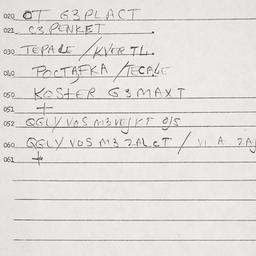 020 OT G3PLACT
021 C3 PENKET
030 TEPALE / KVERTL
040 POCTAFKA / TECALE
050 KOSTER G3MAXT
051 +
052 QGLY VOS M3VEJKT 0/5
060 QGLY VOS M3 2ALCT / VI A
061 +